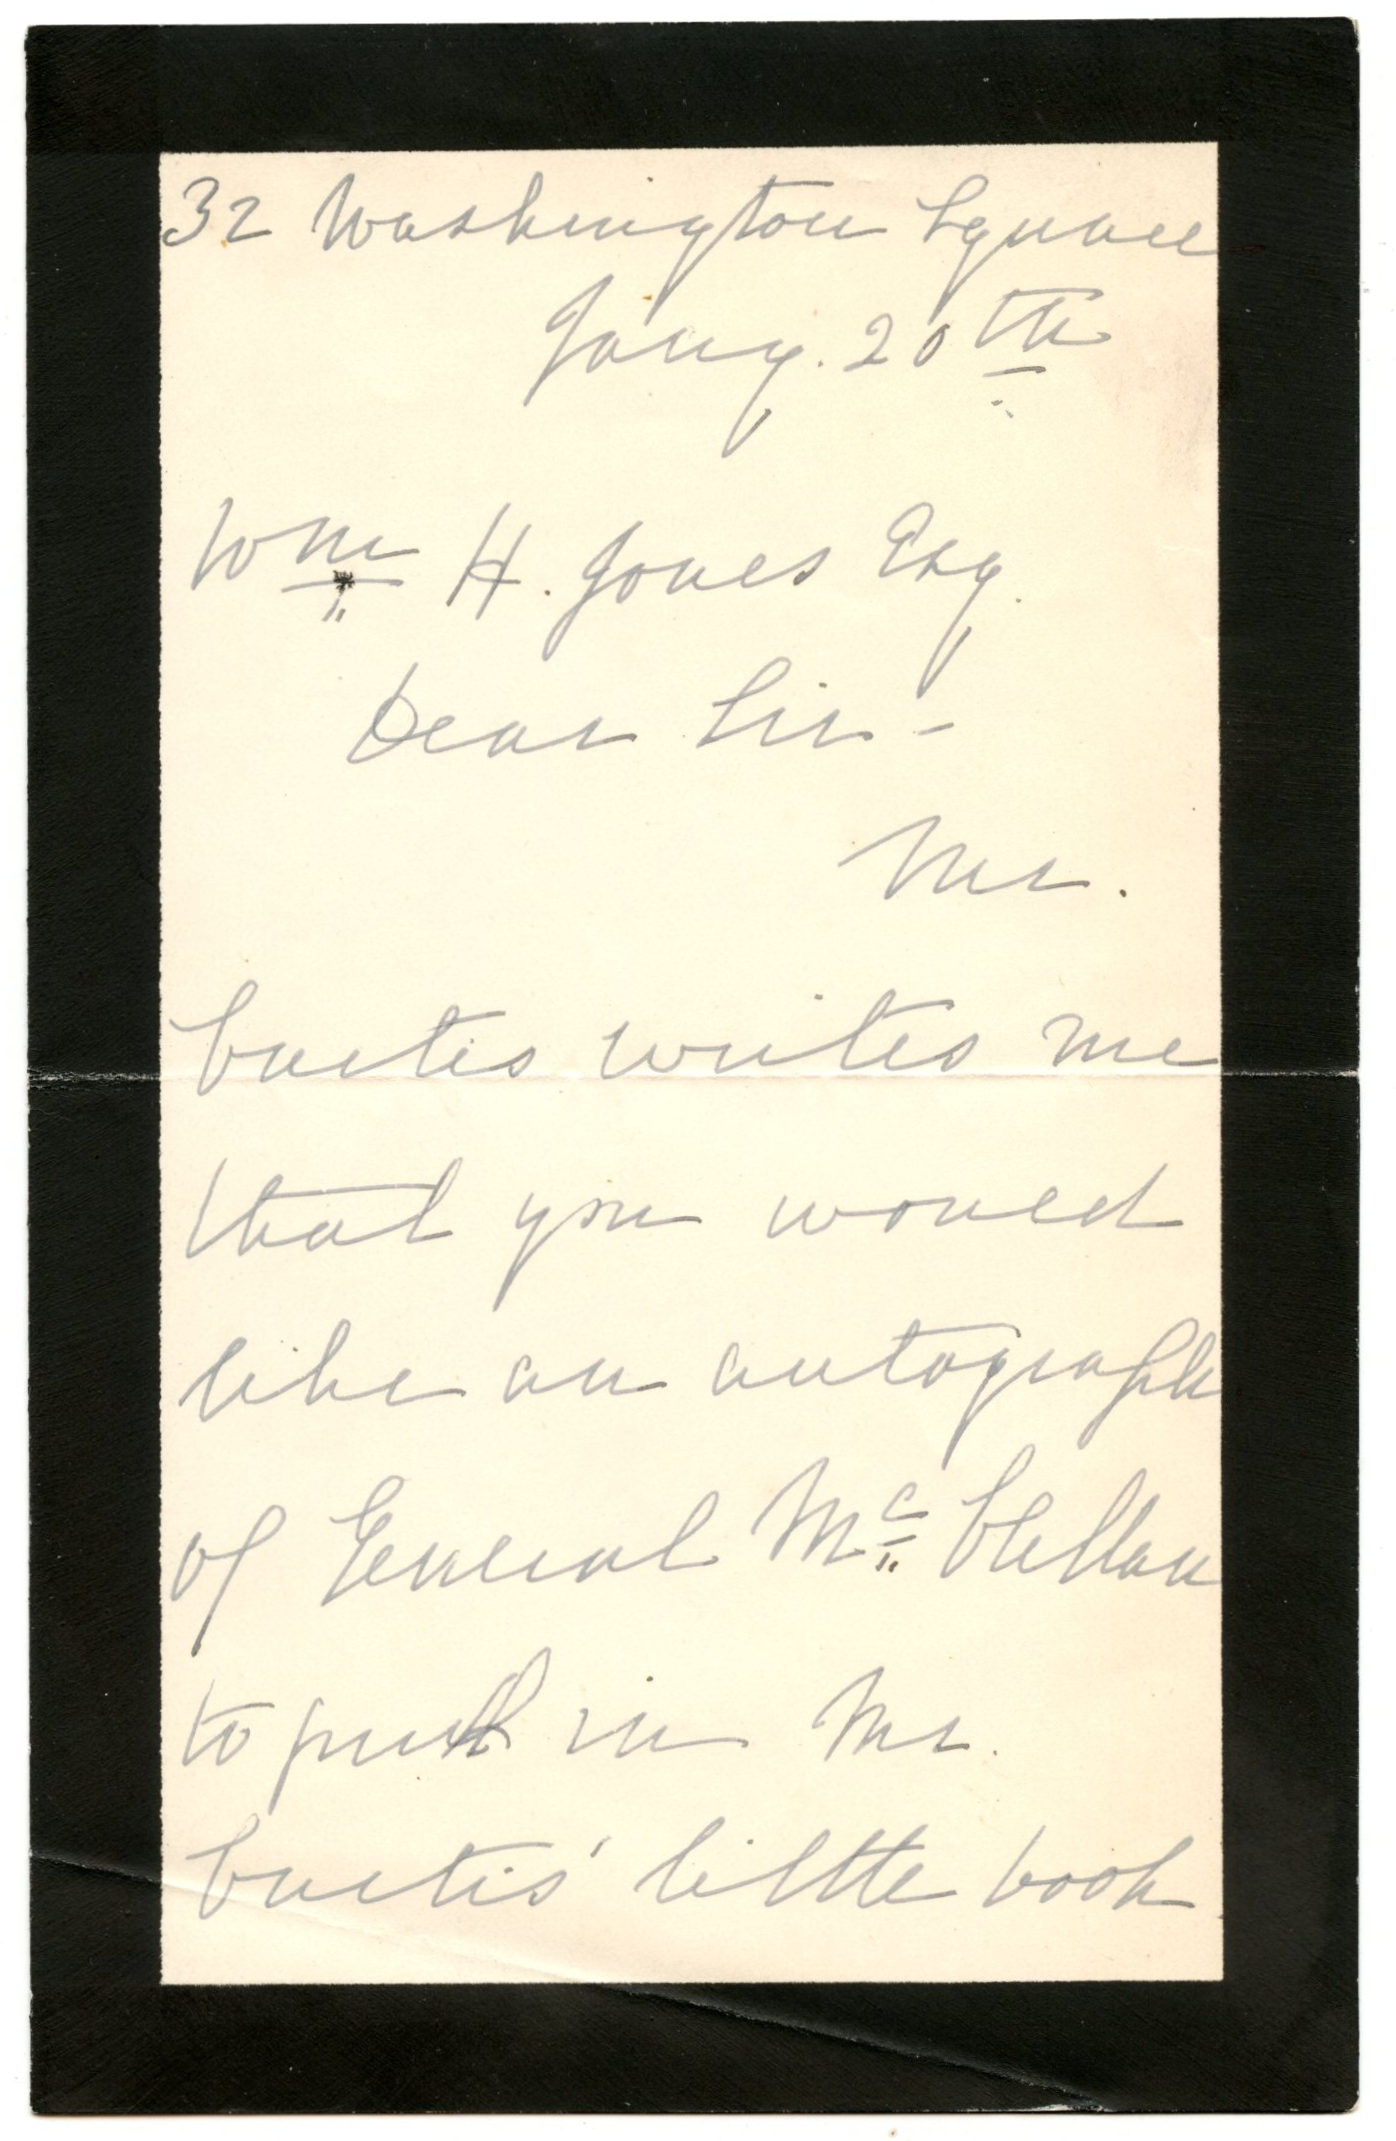 32 Washington Square
Jany. 20th
Wm H. Jones Esq.
Dear Sir -
Mr.
Curtis writes me
that you would
like an autograph
of General Mc Clellan
to put in Mr.
Curtis' little book